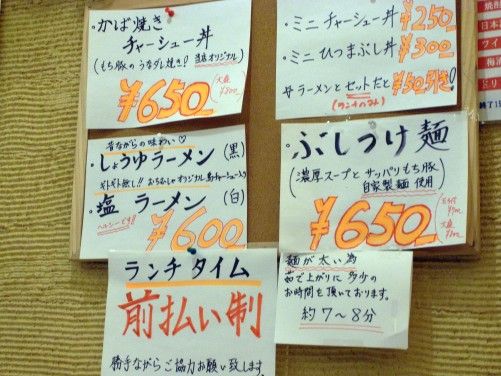 ・かば焼き
チャーシュー丼
(もち豚のうなダレ焼き! 当店オリジナル)
¥650
大盛
¥800
・ミニチャーシュー丼 ¥250
・ミニひつまぶし丼 ¥300
丼ラーメンとセットだと¥50引き!
(ランチのみ)
昔ながらの味わい♡
・しょうゆラーメン (黒)
ギトギト無し!!
オリジナル
・塩 ラーメン (白)
ヘルシーです
¥600
ぶしつけ麺
(濃厚スープと サッパリもち豚
自家製麺 使用)
¥650
大盛
ランチタイム
前払い制
勝手ながらご協力お願い致します
麺が太い為
茹で上がりに多少の
お時間を頂いております。
約7〜8分
焼酎
日本
ワイ
梅酒
終了1